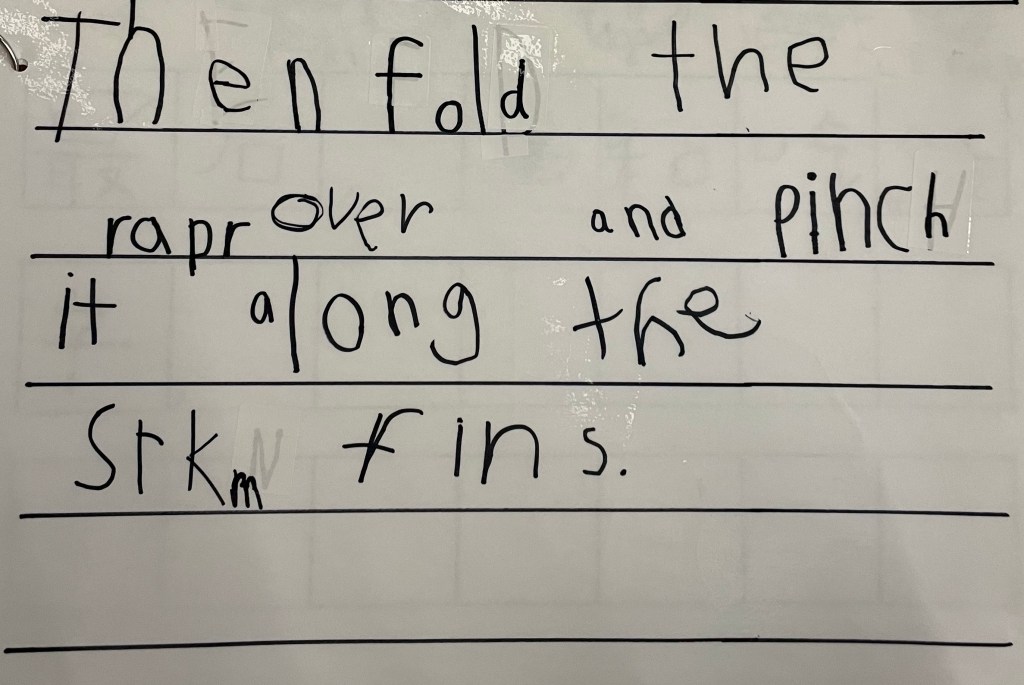 Then fold the
rapr over and pinch
it along the
Srkm fins.